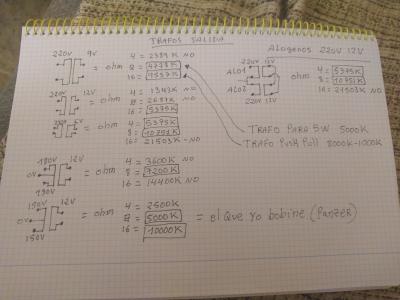 TRAFOS SALIDA
220V 9V
4 = 2389K NO
= ohm 8 = 4778K
16 = 9557K
220V 12V
4 = 1343K NO
= ohm 8 = 2687K NO
16 = 5375K
220V 6V
4 = 5375K
= ohm 8 = 10751K
16 = 21503K - NO
180V 12V
0V
180V
4 = 3600K NO
= ohm 8 = 7200K
16 = 14400K NO
150V 12V
0V
150V
4 = 2500K
= ohm 8 = 5000K = el que yo bobine (Panzer)
16 = 10000K
ALOGENOS 220V 12V
220V 12V
ALO1
ALO2
220V 12V
ohm 4 = 5375K
8 = 10751K
16 = 21503K NO
TRAFO PARA 5W 5000K
TRAFO Push Pull 8000K-1000K